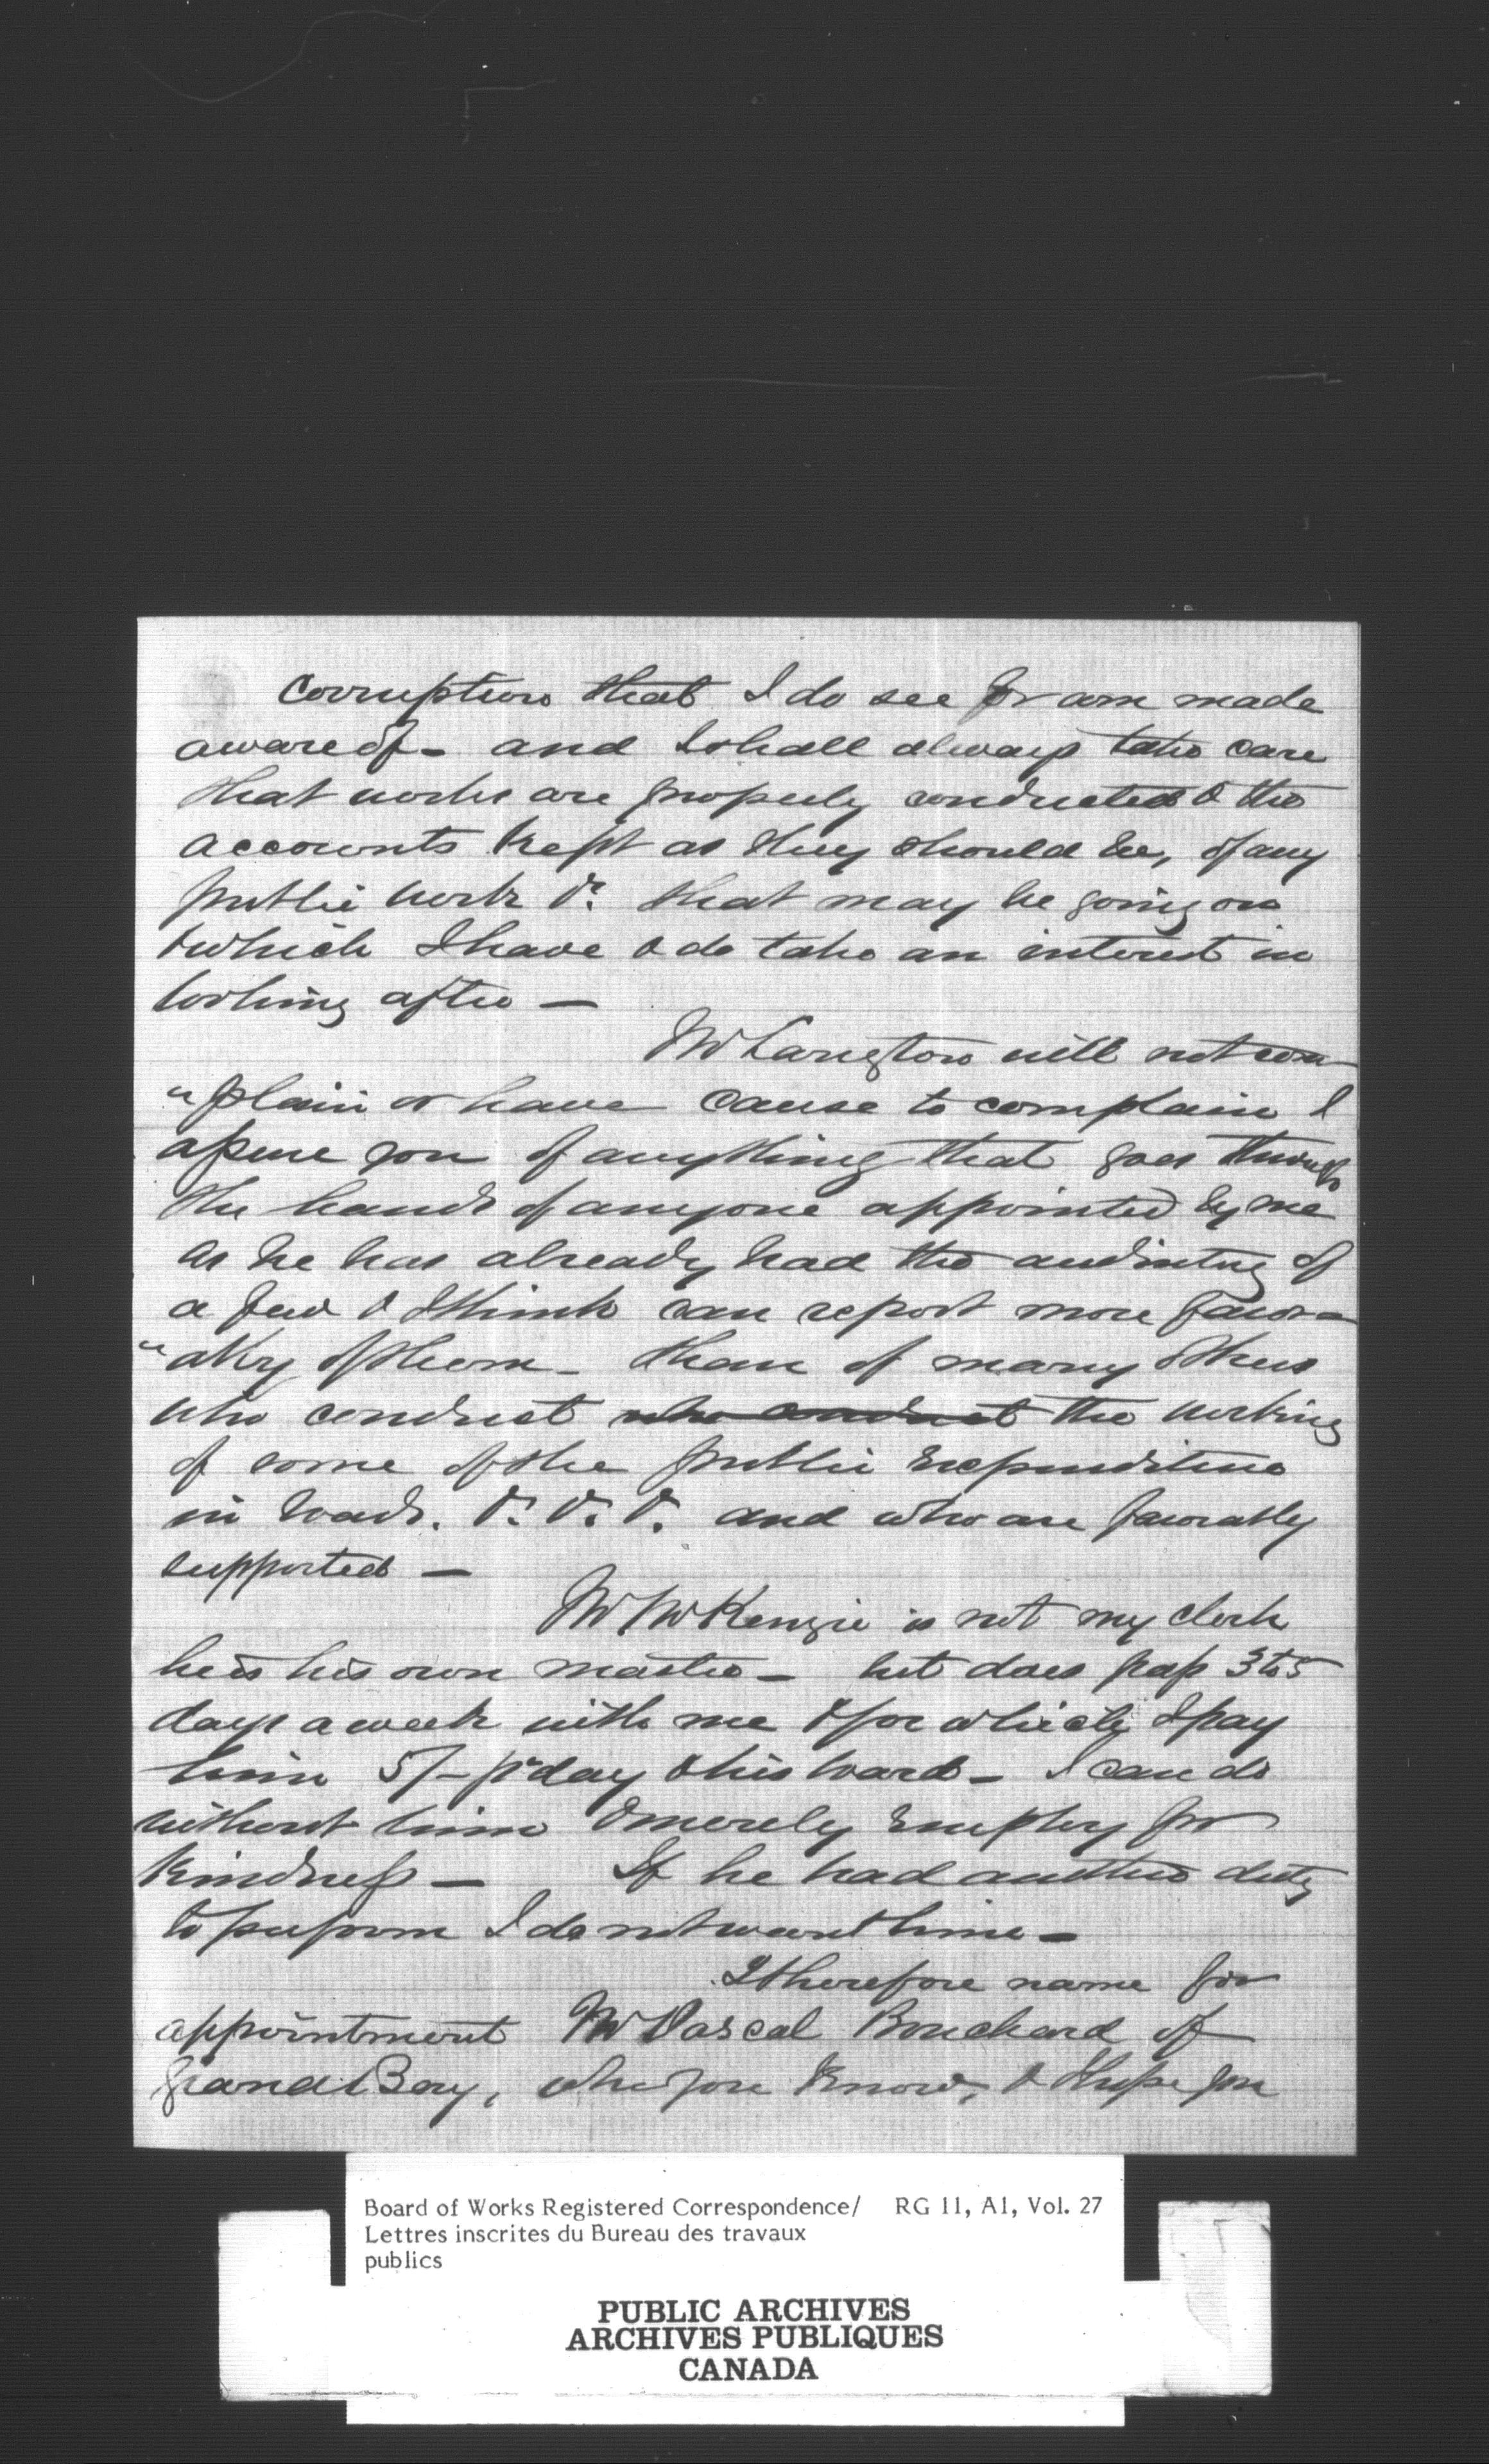 corruption that I do see or am made
aware of - and I shall always take care
that works are properly conducted & the
accounts kept as they should be, of any
public work &c that may be going on
& which I have & do take an interest in
looking after —
Mr Langton will not com
"plain or have cause to complain I
assure you of anything that goes through
the hands of anyone appointed by me
as he has already had the auditing of
a few & I think can report more favor-
"ably of them - than of many others
who conduct who conduct the working
of some of the public Expenditure
in Roads. &c. &c. &c. and who are favorably
supported —
Mr McKenzie is not my clerk
he is his own master - but does pass 3 to 5
days a week with me & for which I pay
him 5/- pr day & his board - I can do
without him & merely Employ for
Kindness — If he had another duty
to perform I do not want him -
I therefore name for
appointment Mr Pascal Bouchard of
Grand Bay, who you Know, & I hope you
Board of Works Registered Correspondence/ RG 11, A1, Vol. 27
Lettres inscrites du Bureau des travaux
publics
PUBLIC ARCHIVES
ARCHIVES PUBLIQUES
CANADA